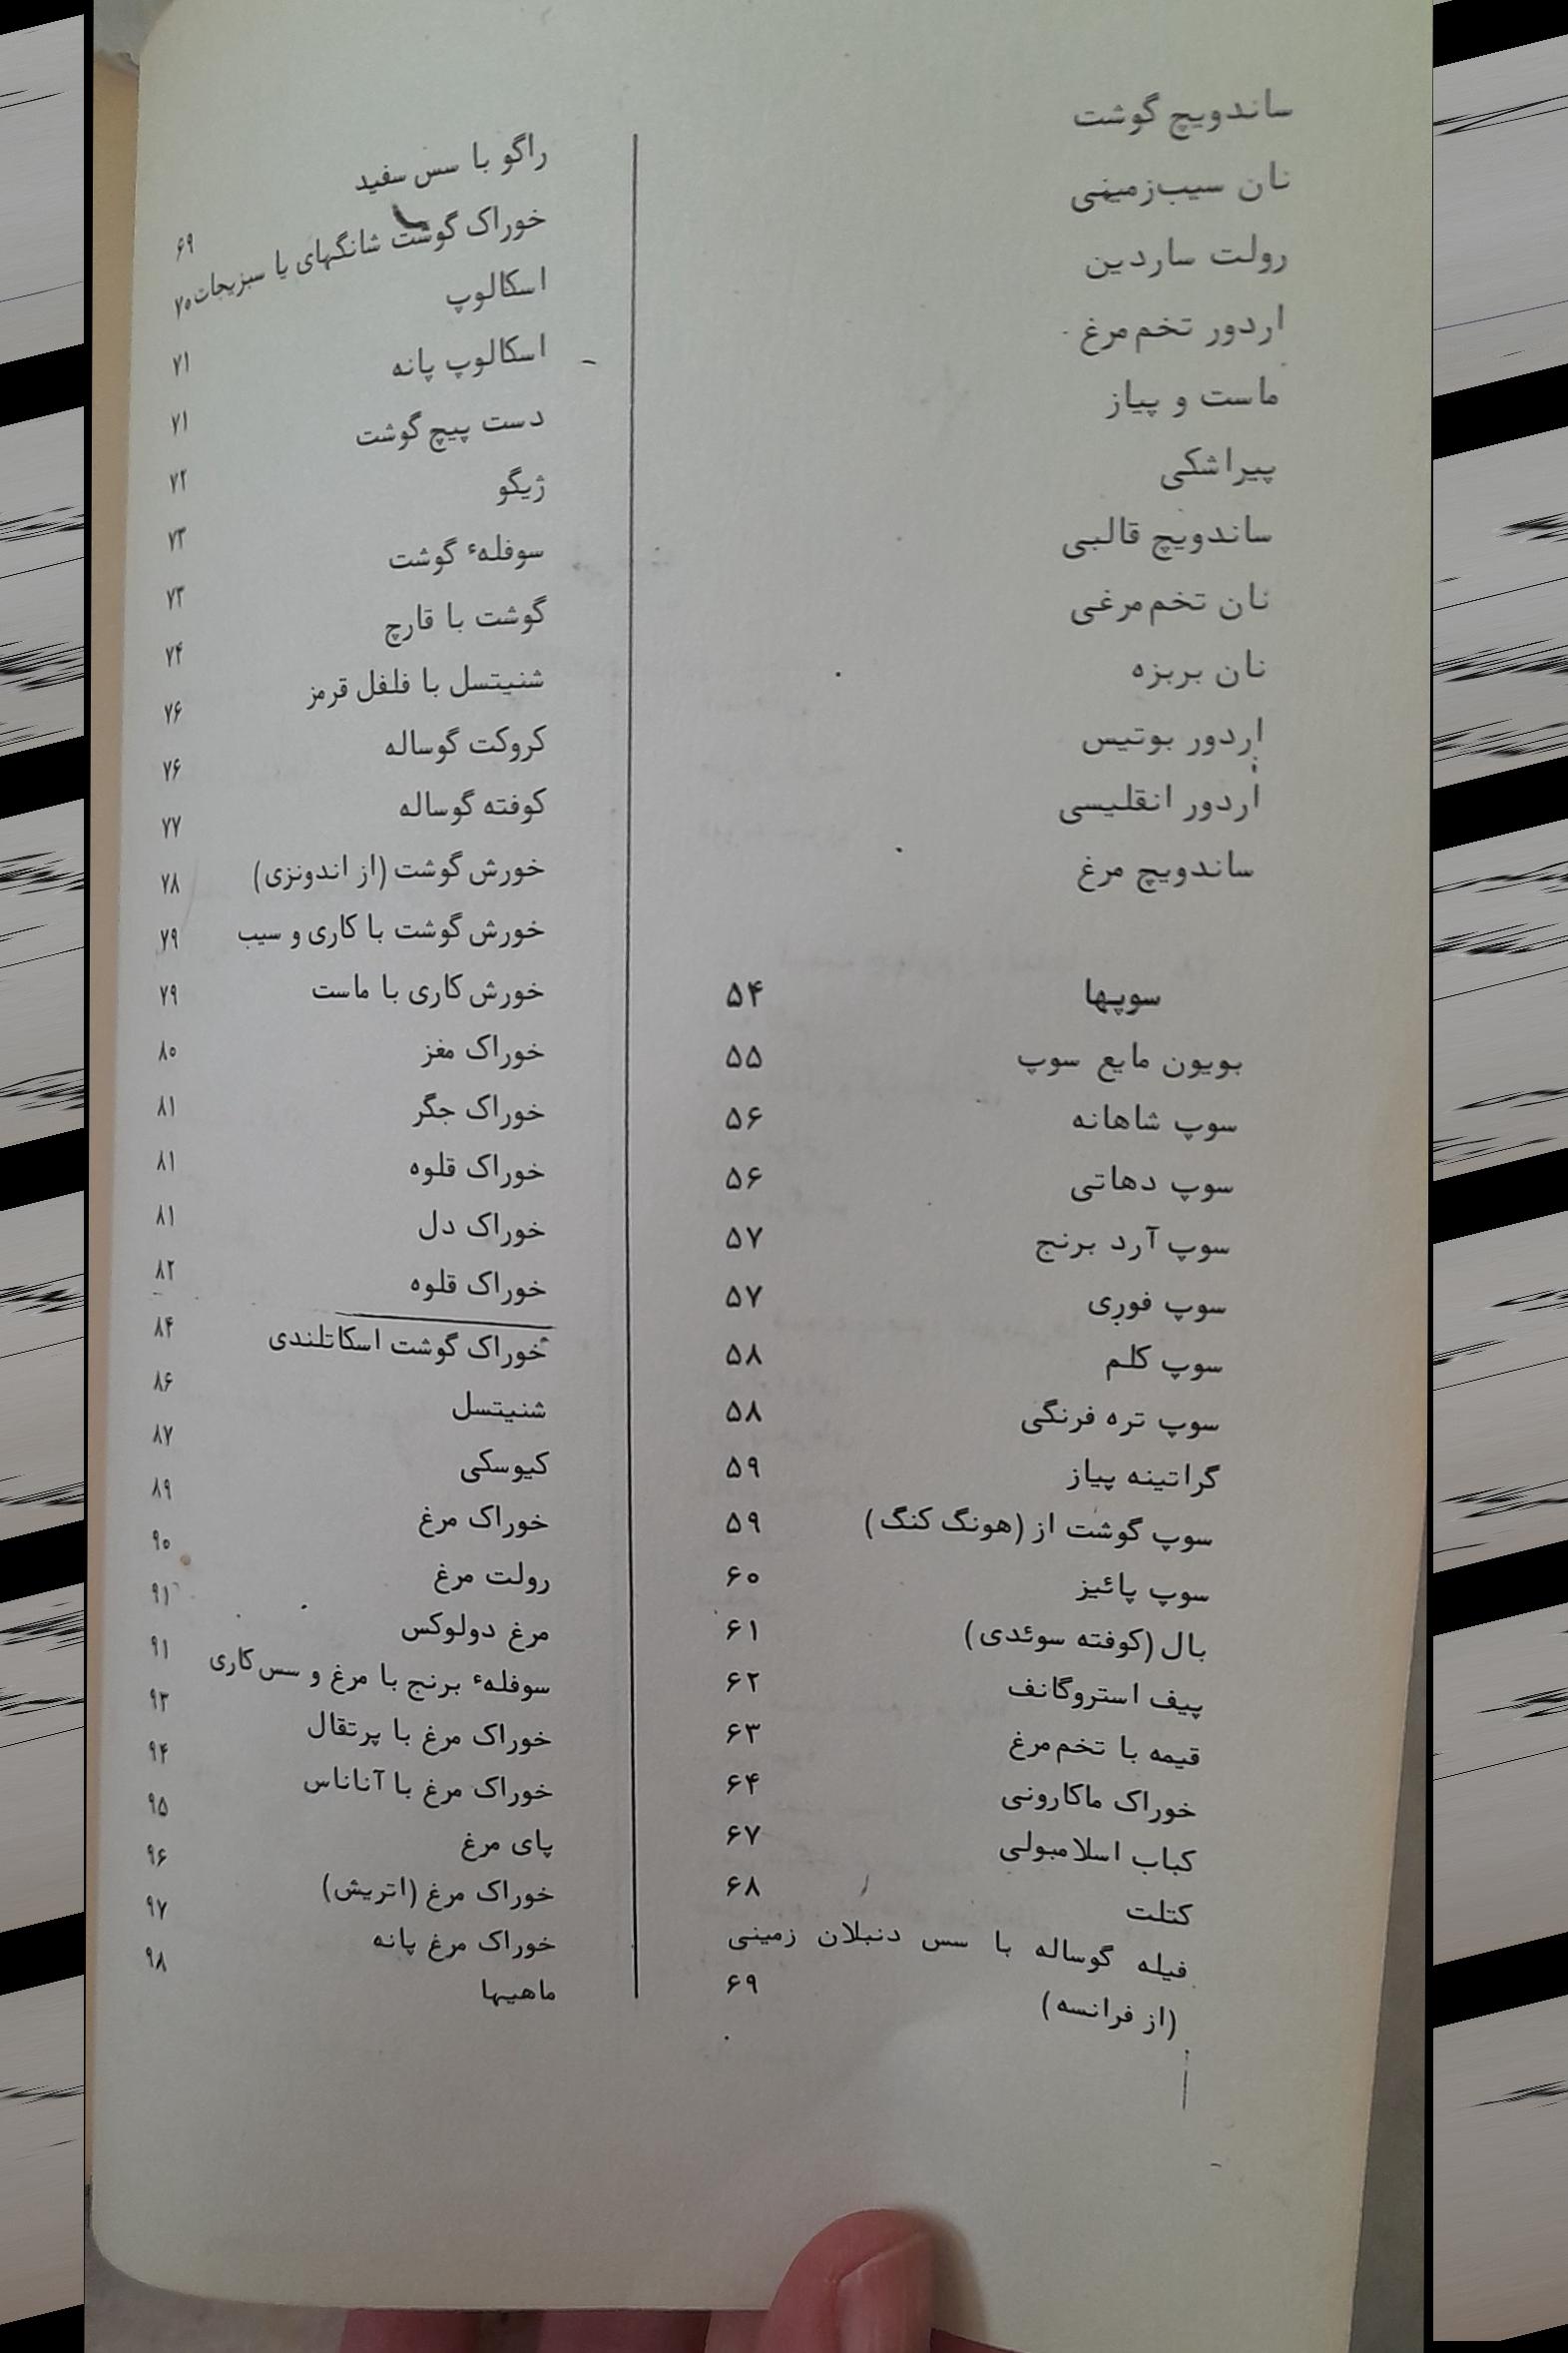 ساندویچ گوشت
نان سیب‌زمینی
رولت ساردین
اردور تخم‌مرغ
ماست و پیاز
پیراشکی
ساندویچ قالبی
نان تخم‌مرغی
نان بربزه
اردور بوتیس
اردور انقلیسی
ساندویچ مرغ
سوپها ۵۴
بویون مایع سوپ ۵۵
سوپ شاهانه ۵۶
سوپ دهاتی ۵۶
سوپ آرد برنج ۵۷
سوپ فوری ۵۷
سوپ کلم ۵۸
سوپ تره فرنگی ۵۸
گراتینه پیاز ۵۹
سوپ گوشت از (هونگ کنگ) ۵۹
سوپ پائیز ۶۰
بال (کوفته سوئدی) ۶۱
پیف استروگانف ۶۲
قیمه با تخم‌مرغ ۶۳
خوراک ماکارونی ۶۴
کباب اسلامبولی ۶۷
کتلت ۶۸
فیله گوساله با سس دنبلان زمینی
(از فرانسه) ۶۹
راگو با سس سفید ۶۹
خوراک گوشت شانگهای یا سبزیجات ۷۰
اسکالوپ ۷۱
اسکالوپ پانه ۷۱
دست پیچ گوشت ۷۲
ژیگو ۷۳
سوفلهٔ گوشت ۷۳
گوشت با قارچ ۷۴
شنیتسل با فلفل قرمز ۷۶
کروکت گوساله ۷۶
کوفته گوساله ۷۷
خورش گوشت (از اندونزی) ۷۸
خورش گوشت با کاری و سیب ۷۹
خورش کاری با ماست ۷۹
خوراک مغز ۸۰
خوراک جگر ۸۱
خوراک قلوه ۸۱
خوراک دل ۸۱
خوراک قلوه ۸۲
خوراک گوشت اسکاتلندی ۸۴
شنیتسل ۸۶
کیوسکی ۸۷
خوراک مرغ ۸۹
رولت مرغ ۹۰
مرغ دولوکس ۹۱
سوفلهٔ برنج با مرغ و سس کاری ۹۱
خوراک مرغ با پرتقال ۹۳
خوراک مرغ با آناناس ۹۴
پای مرغ ۹۵
خوراک مرغ (اتریش) ۹۶
خوراک مرغ پانه ۹۷
ماهیها ۹۸